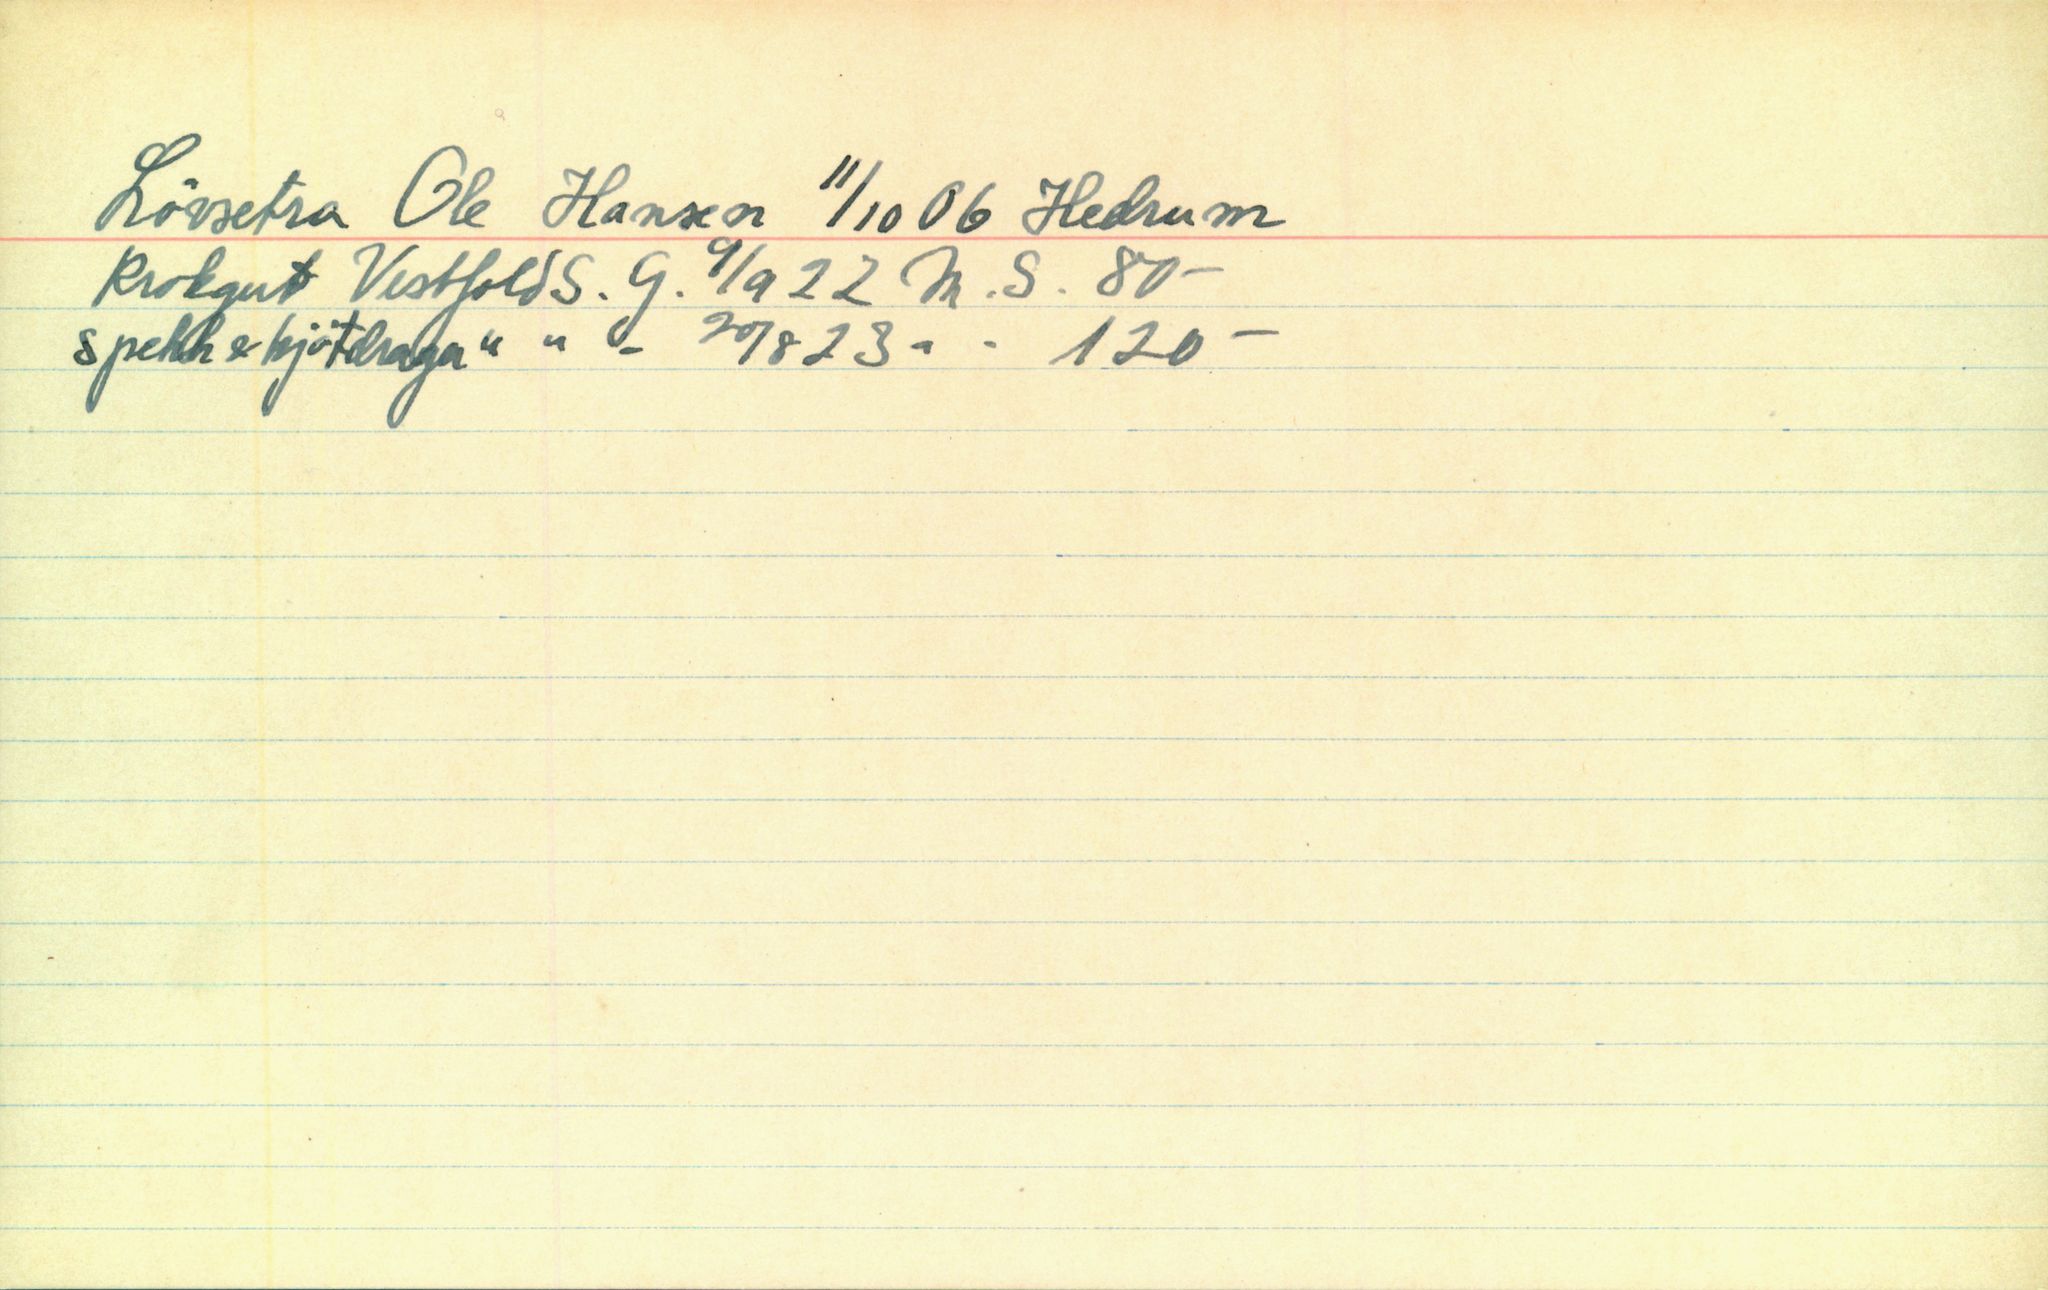 Lövsetra Ole Hansen 11/10 06 Hedrum
Krokgut Vestfold S. G. 9/9 22 M. S. 80 -
spekk & kjötdraga " " - 20/8 23 " - 120 -